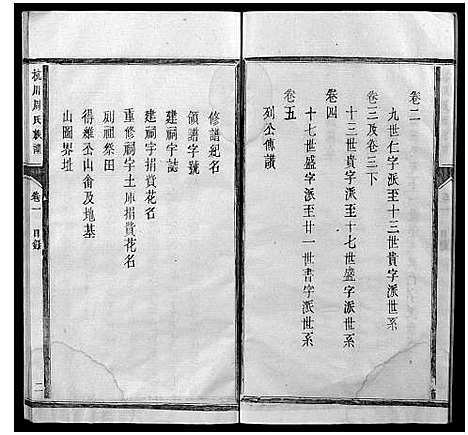 卷二
九世仁字派至十三世貴字派世系
卷三及卷三下
十三世貴字派至十七世盛字派世系
卷四
十七世盛字派至廿一世書字派世系
卷五
列公傳讚
修譜紀名
領譜字號
建祠字誌
建祠字捐貲花名
重修祠字土庫捐貲花名
列祖祭田
得雜公山畬及地基
山圖界址
杭川周氏族譜
卷一
目錄
二